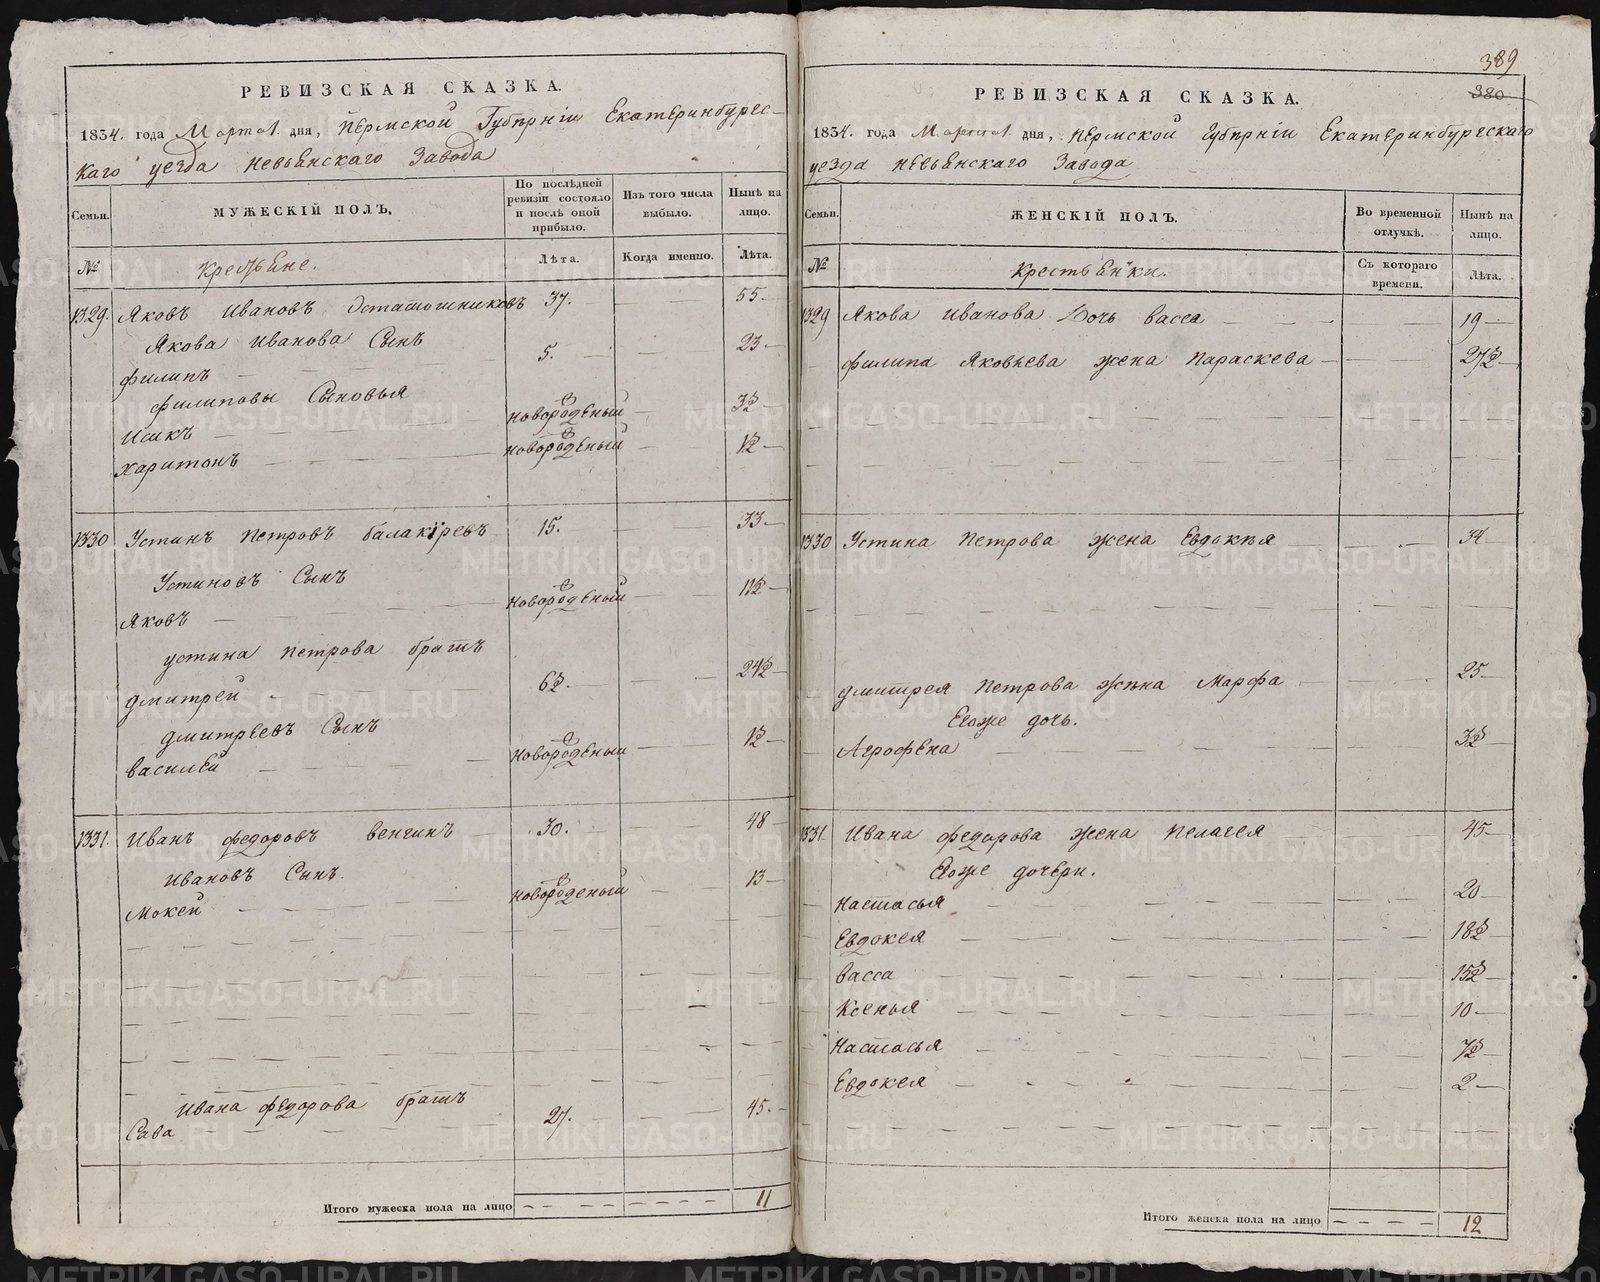 РЕВИЗСКАЯ СКАЗКА.
1834. года Марта 1. дня, Пермской Губѣрніи Екатеринбургс-
каго уезда Невьѣнскаго Завода
Семьи.
МУЖЕСКІЙ ПОЛЪ.
По послѣдней ревизіи состояло и послѣ оной прибыло.
Изъ того числа выбыло.
Нынѣ на лицо.
№
Крестьѣне.
Лѣта.
Когда именно.
Лѣта.
1329. Яковъ Ивановъ Осташошниковъ 37. 55
Якова Иванова Сынъ
Филипъ 5. 23
Филиповы Сыновья
Исакъ новорожденый 3½
Харитонъ новорожденый 1½
1330 Устинъ Петровъ балакiревъ 15. 33
Устиновъ Сынъ
Яковъ новорожденый 11½
Устина Петрова братъ
Дмитрей 6½. 24½
Дмитрѣевъ Сынъ
Василѣй новорожденый 1½
1331. Иванъ Федоровъ Венгинъ 30. 48
Ивановъ Сынъ.
Мокей новорожденый 13
Ивана Федорова братъ
Сава 27. 45.
Итого мужеска пола на лицо 11
389
380
РЕВИЗСКАЯ СКАЗКА.
1834. года Марта 1. дня, Пермской Губѣрніи Екатеринбургскаго
уезда Невьѣнскаго Завода
Семьи.
ЖЕНСКІЙ ПОЛЪ.
Во временной отлучкѣ.
Нынѣ на лицо.
№
Крестьѣнки.
Съ котораго времени.
Лѣта.
1329 Якова Иванова Дочь Васса 19
Филипа Яковлева жена Параскева 27½
1330 Устина Петрова жена Евдокѣя 34
Дмитрея Петрова жѣна Марфа 25
Евоже дочь.
Агрофѣна 3½
1331. Ивана Федорова жена Пелагея 45
Евоже дочѣри.
Настасья 20
Евдокея 18½
Васса 15½
Ксенья 10
Настасья 7½
Евдокея 2
Итого женска пола на лицо 12
METRIKI.GASO-URAL.RU